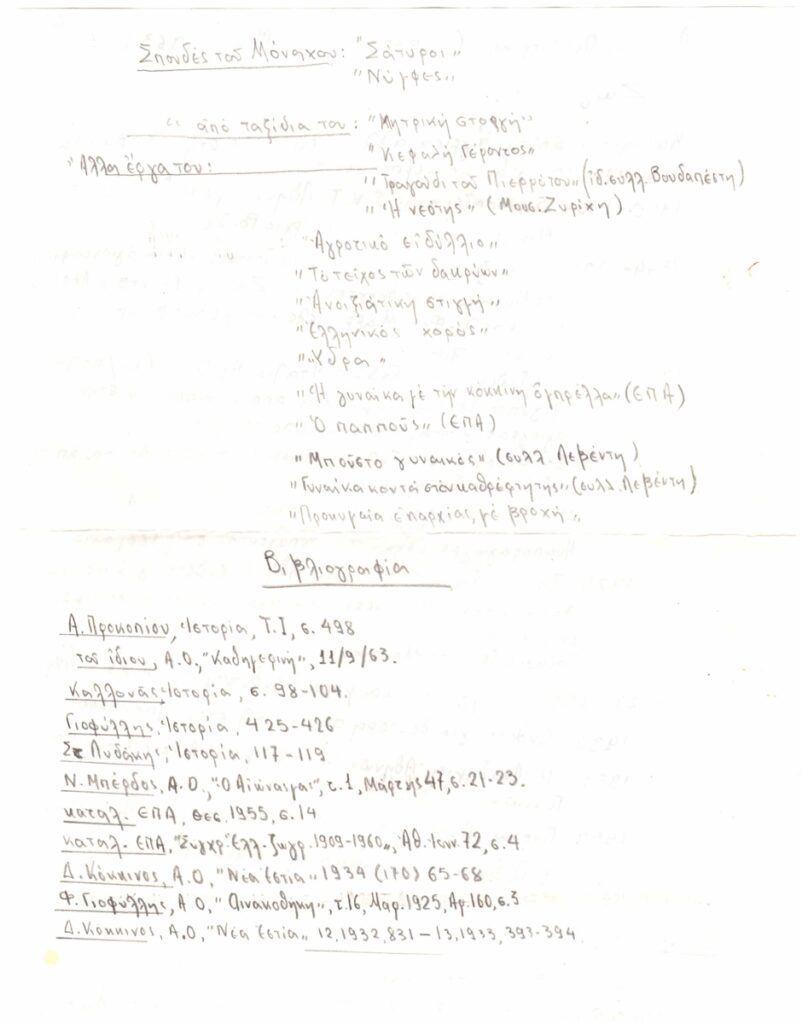 Σπουδές τοῦ Μόναχου: "Σάτυροι"
"Νύμφες"
" ἀπό ταξίδια του: "Μητρική στοργή"
"Κεφαλή Γέροντος"
Ἄλλα ἔργα του:
"Τραγούδι τοῦ Πιερρότου" (ἰδ. συλλ. Βουδαπέστη)
"Ἡ νεότης" (Μουσ. Ζυρίχη)
"Ἀγροτικό εἰδύλλιο"
"Τό τεῖχος τῶν δακρύων"
"Ἀνοιξιάτικη στιγμή"
"Ἑλληνικός χορός"
"Ὕδρα"
"Ἡ γυναίκα μέ τήν κόκκινη ὀμπρέλλα" (ΕΠΑ)
"Ὁ παπποῦς" (ΕΠΑ)
"Μποῦστο γυναικός" (συλλ. Λεβέντη)
"Γυναίκα κοντά στόν καθρέφτη της" (συλλ. Λεβέντη)
"Προκυμαία ἐπαρχίας, μέ βροχή"
Βιβλιογραφία
Α. Προκοπίου, Ἱστορία, Τ.Ι, σ. 498
τοῦ ἰδίου, Α.Ο., "Καθημερινή", 11/9/63.
Καλλονᾶς, Ἱστορία, σ. 98-104.
Γιοφύλλης, Ἱστορία, 425-426
Στ Λυδάκης, Ἱστορία, 117-119
Ν. Μπέρδος, Α.Ο., "Ὁ Αἰώνας μας", τ.1, Μάρτης 47, σ. 21-23.
καταλ. ΕΠΑ, Θεσ. 1955, σ. 14
καταλ. ΕΠΑ, "Συγχρ. Ἑλλ. ζωγρ. 1909-1960", Ἀθ. Ἰαν. 72, σ. 4
Δ. Κόκκινος, Α.Ο, "Νέα Ἑστία" 1934 (170) 65-68
Φ. Γιοφύλλης, Α Ο, "Πινακοθήκη", τ. 16, Μαρ. 1925, Αρ. 160, σ. 3
Δ. Κόκκινος, Α.Ο, "Νέα Ἑστία" 12, 1932, 831 – 13, 1933, 393-394